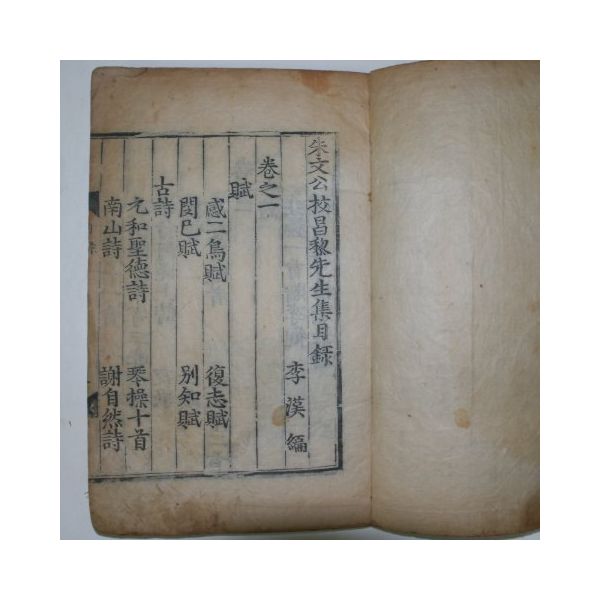 朱文公校昌黎先生集目録
李漢編
卷之一
賦
感二鳥賦 復志賦
閔己賦 別知賦
古詩
元和聖德詩 琴操十首
南山詩 謝自然詩